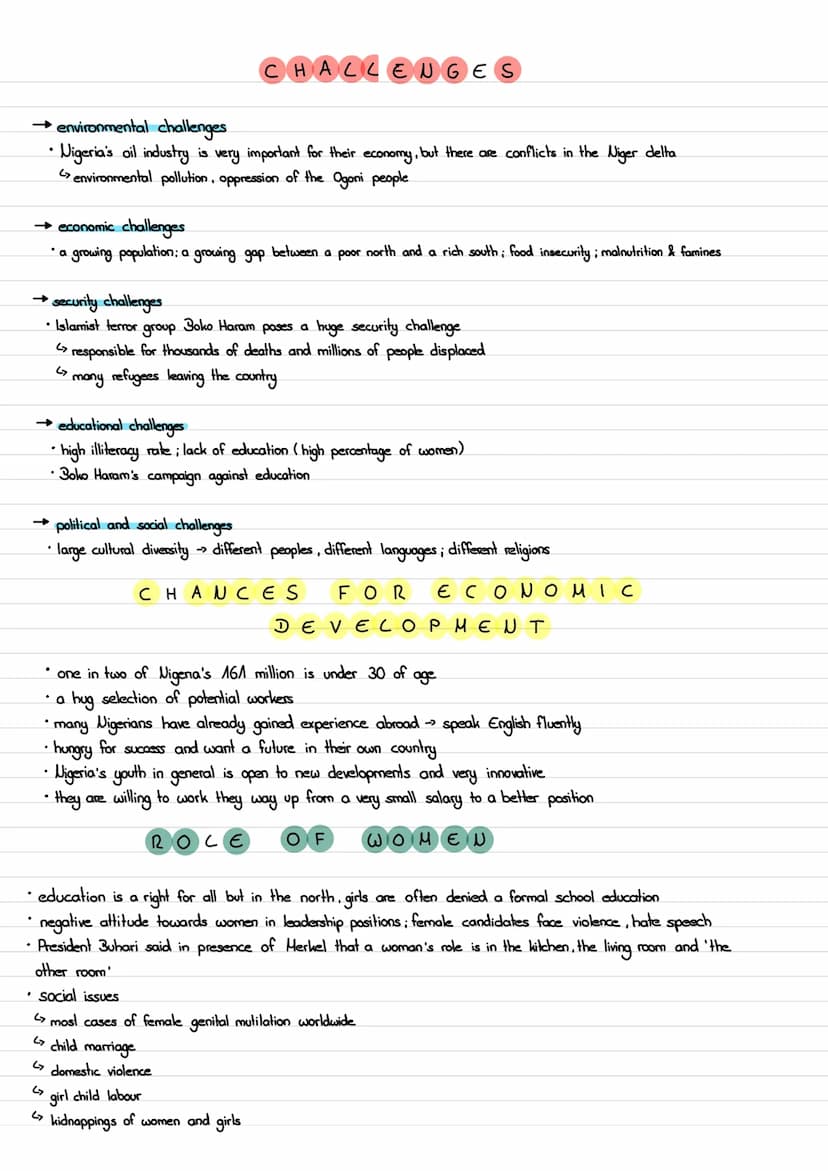 CHALLENGES
→ environmental challenges
• Nigeria's oil industry is very important for their economy, but there are conflicts in the Niger delta
↳ environmental pollution, oppression of the Ogoni people
→ economic challenges
• a growing population; a growing gap between a poor north and a rich south; food insecurity; malnutrition & famines
→ security challenges
• Islamist terror group Boko Haram poses a huge security challenge
↳ responsible for thousands of deaths and millions of people displaced
↳ many refugees leaving the country
→ educational challenges
• high illiteracy rate; lack of education (high percentage of women)
• Boko Haram's campaign against education
→ political and social challenges
• large cultural diversity → different peoples, different languages; different religions
CHANCES FOR ECONOMIC
DEVELOPMENT
• one in two of Nigeria's 161 million is under 30 of age
• a hug selection of potential workers
• many Nigerians have already gained experience abroad → speak English fluently
• hungry for success and want a future in their own country
• Nigeria's youth in general is open to new developments and very innovative
• they are willing to work they way up from a very small salary to a better position
ROLE OF WOMEN
• education is a right for all but in the north, girls are often denied a formal school education
• negative attitude towards women in leadership positions; female candidates face violence, hate speech
• President Buhari said in presence of Merkel that a woman's role is in the kitchen, the living room and 'the
other room'
• social issues
↳ most cases of female genital mutilation worldwide
↳ child marriage
↳ domestic violence
↳ girl child labour
↳ kidnappings of women and girls